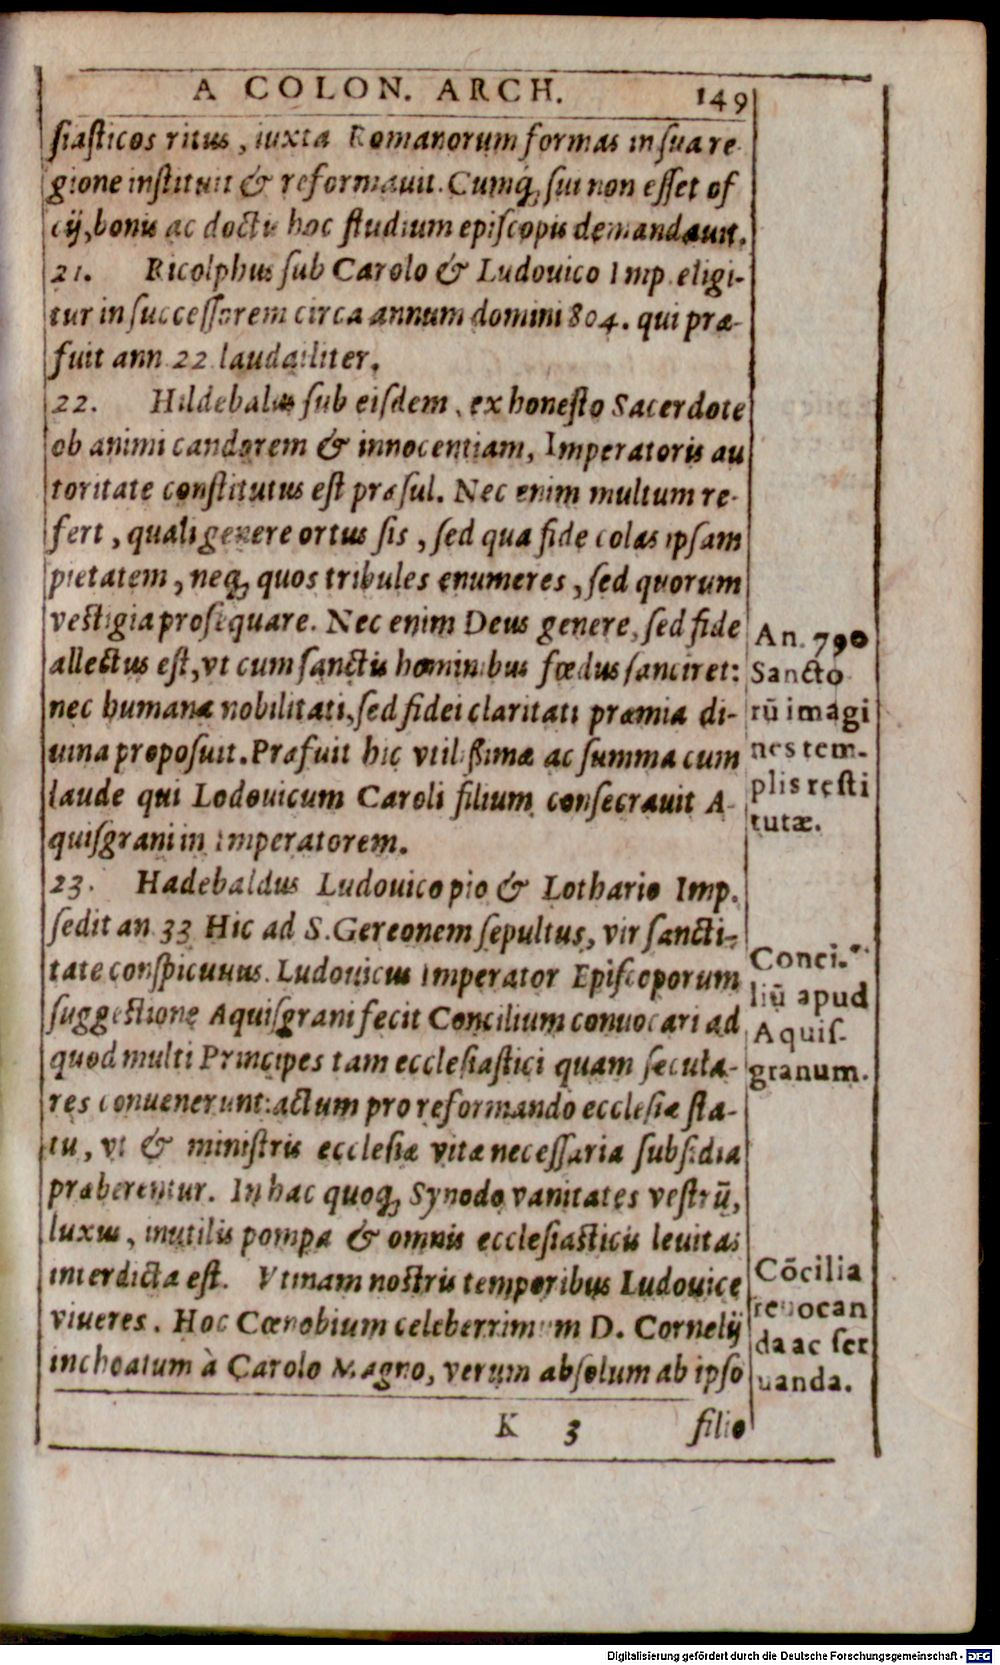 A COLON. ARCH. 149
siasticos ritus, iuxta Romanorum formas in sua re-
gione instituit & reformauit. Cumq; sui non esset of
cij, bonis ac doctis hoc studium episcopis demandauit.
21. Ricolphus sub Carolo & Ludouico Imp. eligi-
tur in successorem circa annum domini 804. qui præ-
fuit ann 22 laudabiliter.
22. Hildebalus sub eisdem, ex honesto Sacerdote
ob animi candorem & innocentiam, Imperatoris au
toritate constitutus est præsul. Nec enim multum re-
fert, quali genere ortus sis, sed qua fide colas ipsam
pietatem, neq; quos tribules enumeres, sed quorum
vestigia prosequare. Nec enim Deus genere, sed fide
allectus est, vt cum sanctis hominibus fœdus sanciret:
nec humanæ nobilitati, sed fidei claritati præmia di-
uina proposuit. Præfuit hic vtilissimæ ac summa cum
laude qui Lodouicum Caroli filium consecrauit A-
quisgrani in Imperatorem.
23. Hadebaldus Ludouico pio & Lothario Imp.
sedit an 33 Hic ad S. Gereonem sepultus, vir sancti-
tate conspicuuus. Ludouicus Imperator Episcoporum
suggestione Aquisgrani fecit Concilium conuocari ad
quod multi Principes tam ecclesiastici quam secula-
res conuenerunt: actum pro reformando ecclesiæ sta-
tu, vt & ministris ecclesiæ vitæ necessaria subsidia
præberentur. In hac quoq; Synodo vanitates vestiũ,
luxus, inutilis pompa & omnis ecclesiasticis leuitas
interdicta est. Vtinam nostris temporibus Ludouice
viueres. Hoc Cœnobium celeberrimum D. Cornelij
inchoatum à Carolo Magno, verum absolum ab ipso
K 3 filio
An. 790
Sancto
rũ imagi
nes tem-
plis resti
tutæ.
Conci-
liũ apud
Aquis-
granum.
Cõcilia
reuocan
da ac ser
uanda.
Digitalisierung gefördert durch die Deutsche Forschungsgemeinschaft - DFG